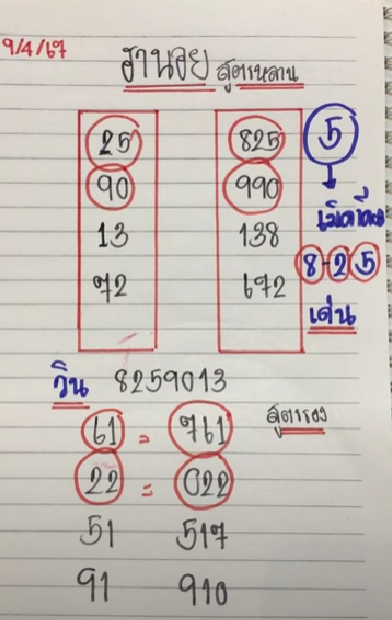 9/4/67
ฮานอย สูตรหลาน
25 825 5
90 990 เม็ดเดียว
13 138 8-2-5
72 672 เด่น
วิน 8259013
สูตรรอง
61 = 761
22 = 022
51 517
91 910